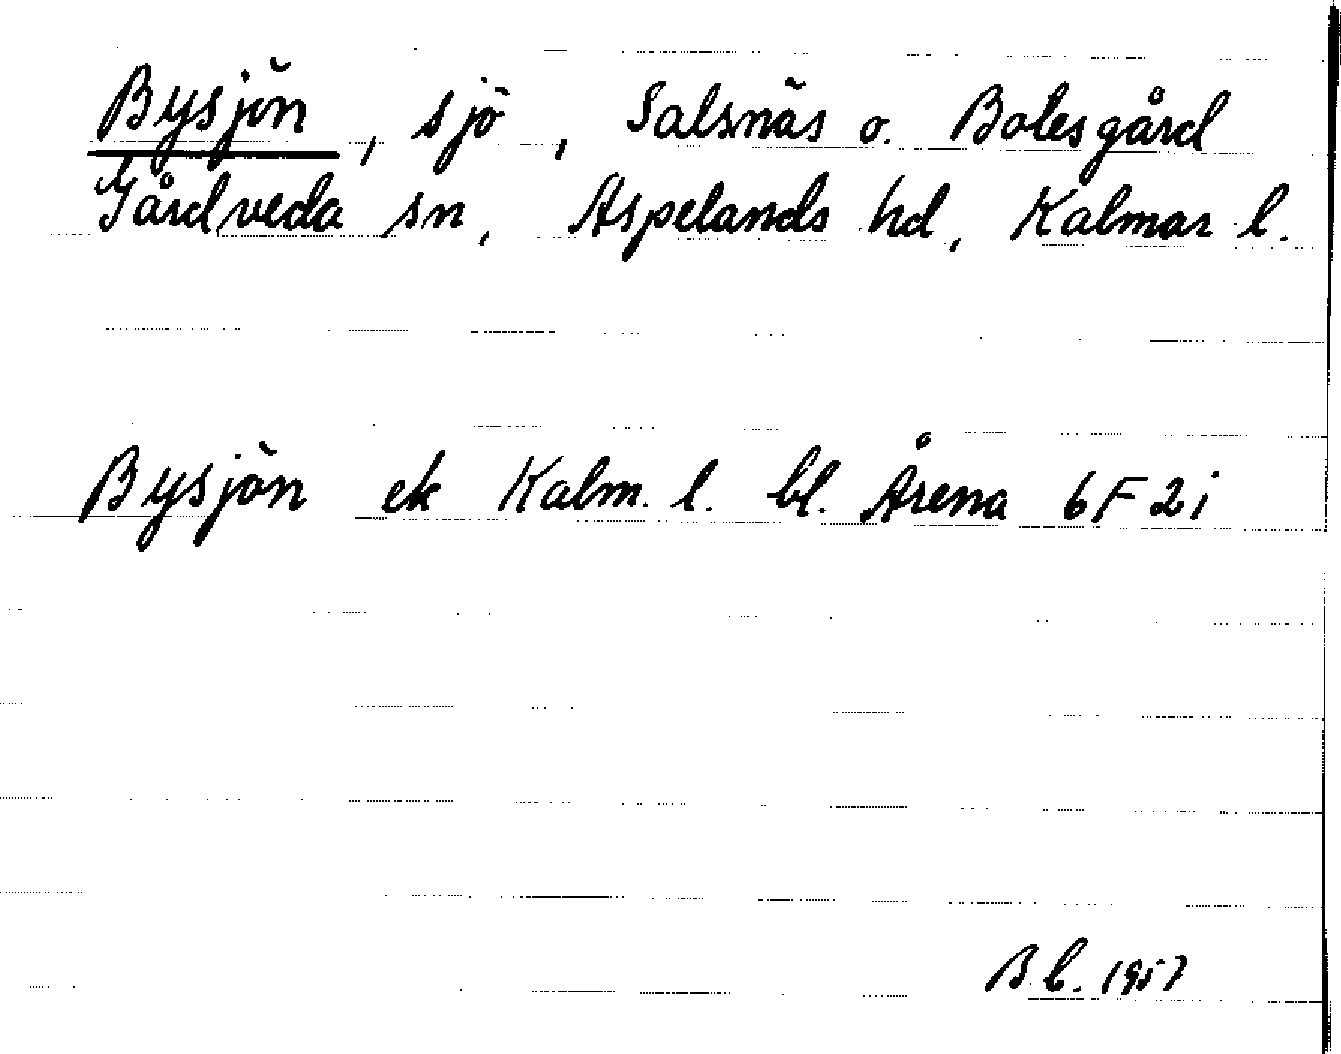 Bysjön, sjö, Salsnäs o. Bolesgård
Gårdveda sn, Aspelands hd, Kalmar l.
Bysjön ek Kalm. l. bl. Årena 6F2i
B b. 1957